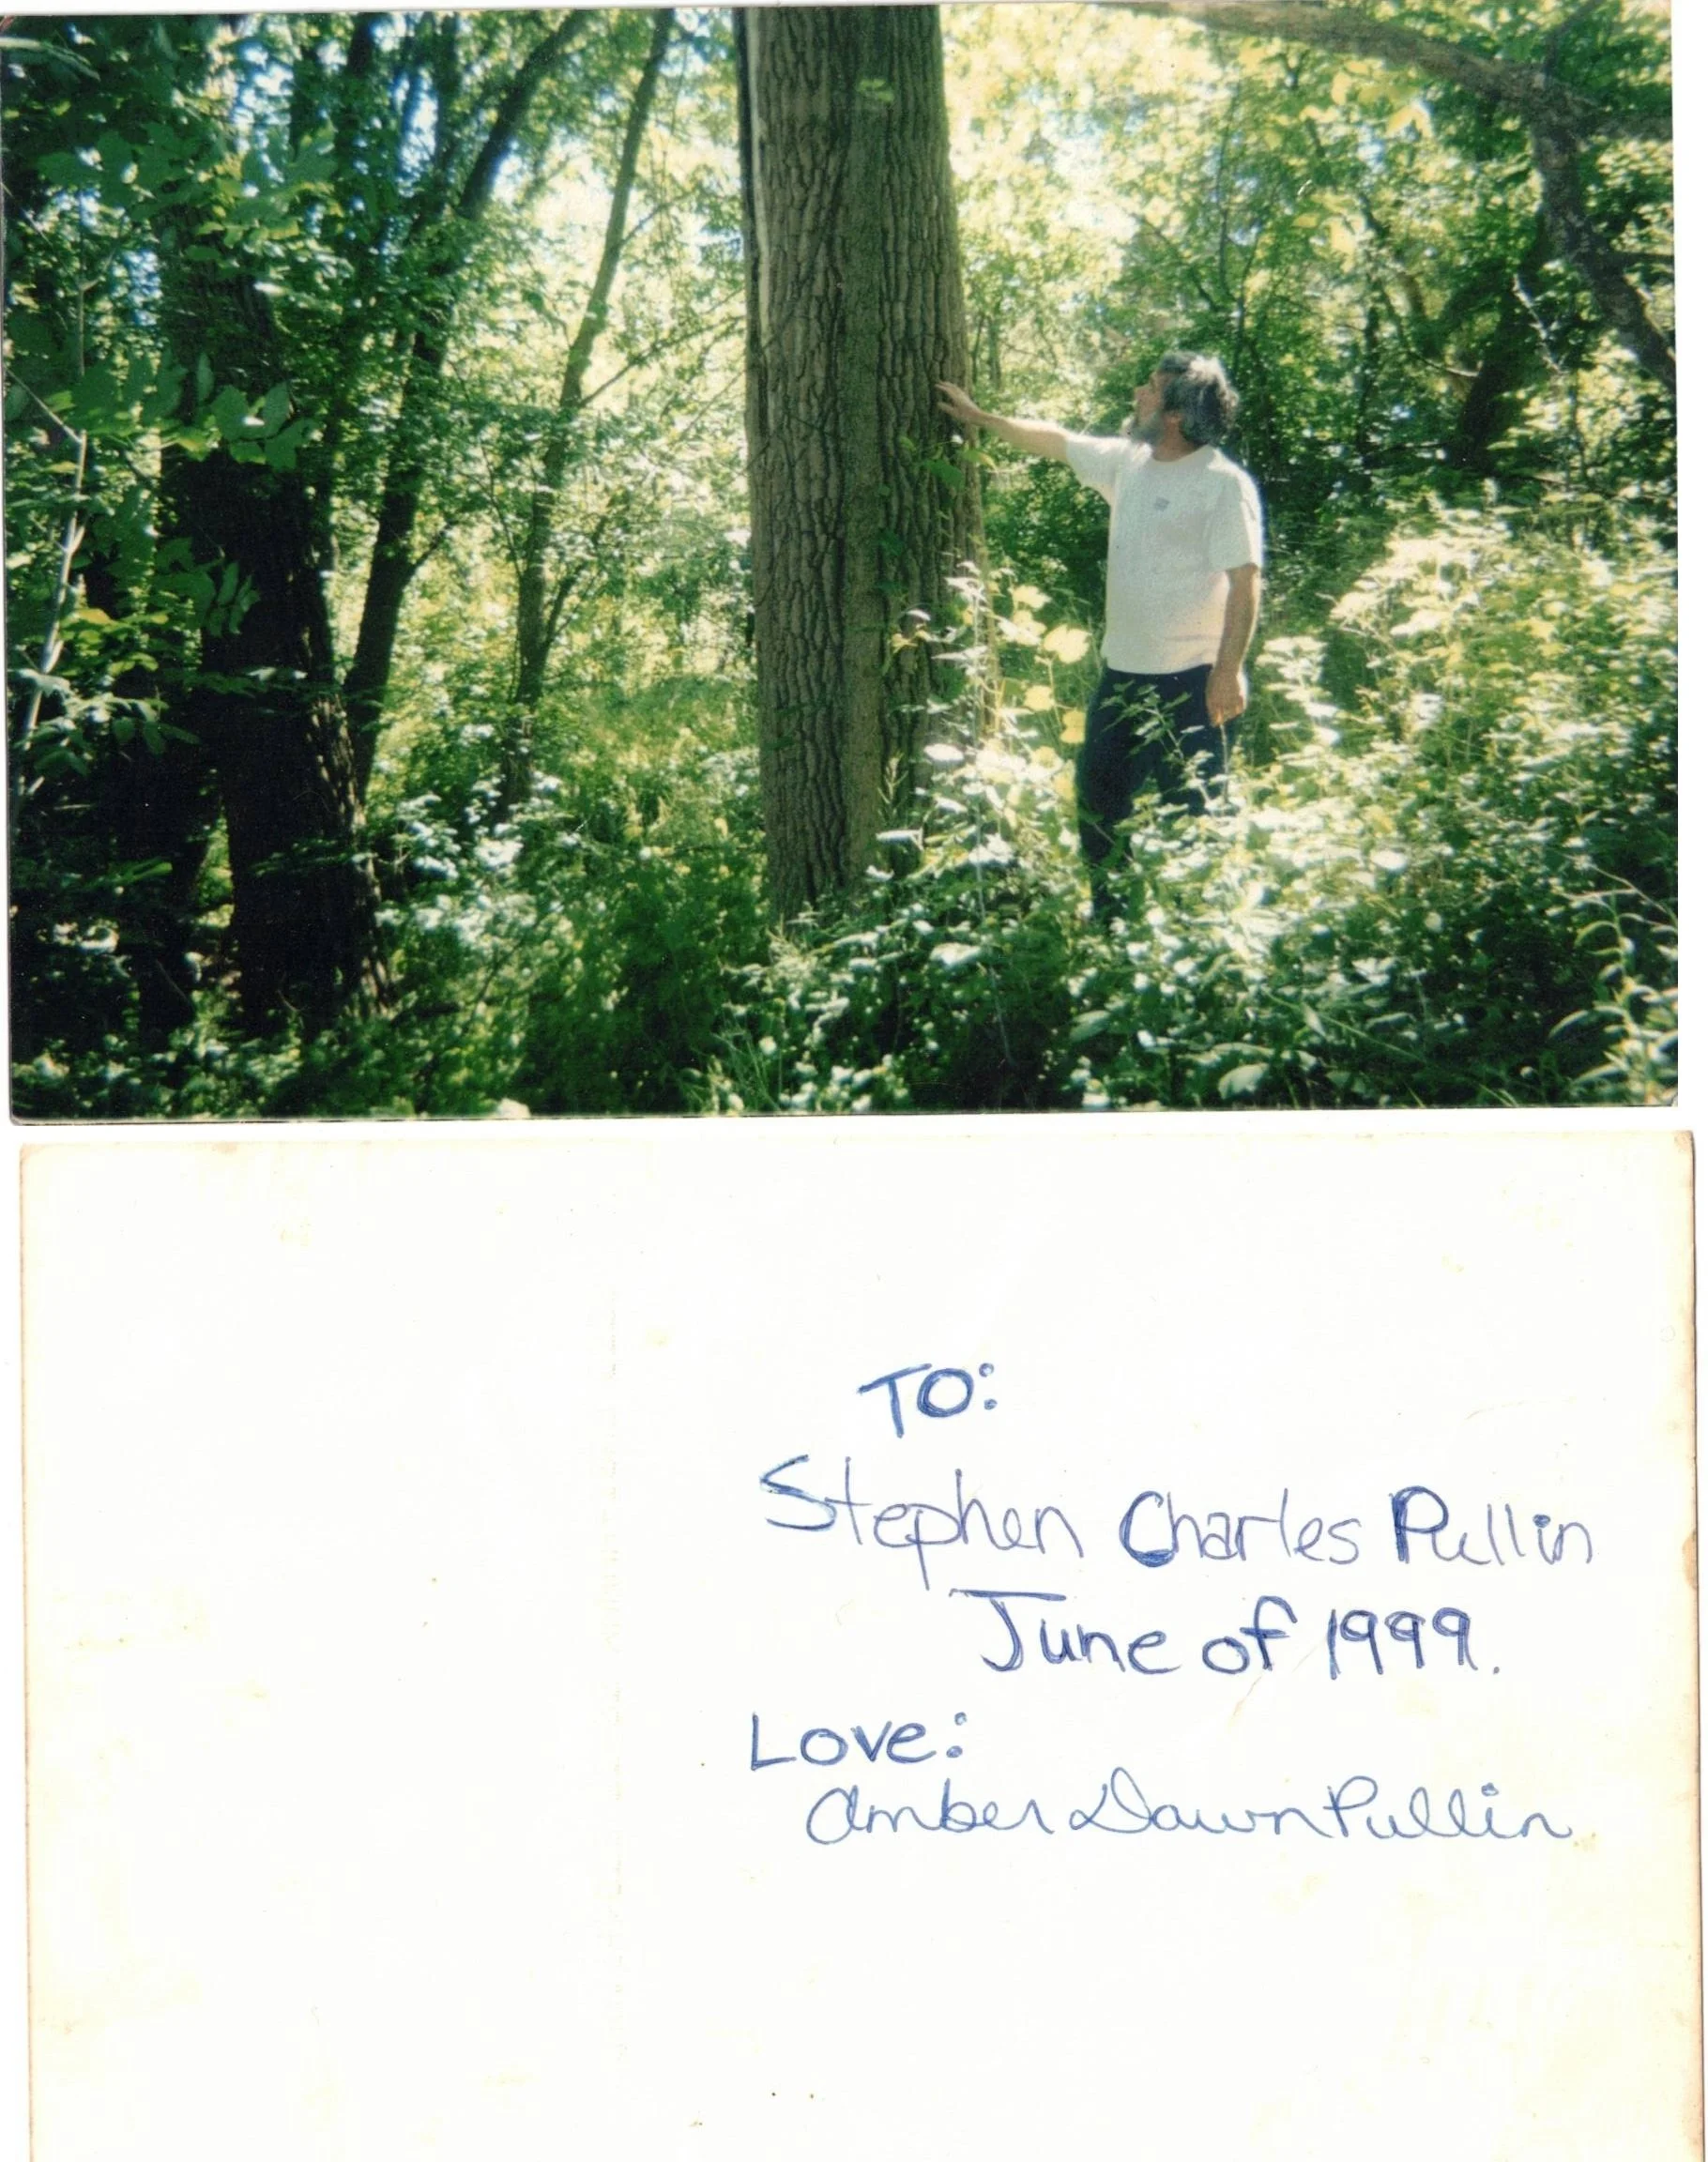 TO:
Stephen Charles Pullin
June of 1999.
Love:
Amber Dawn Pullin